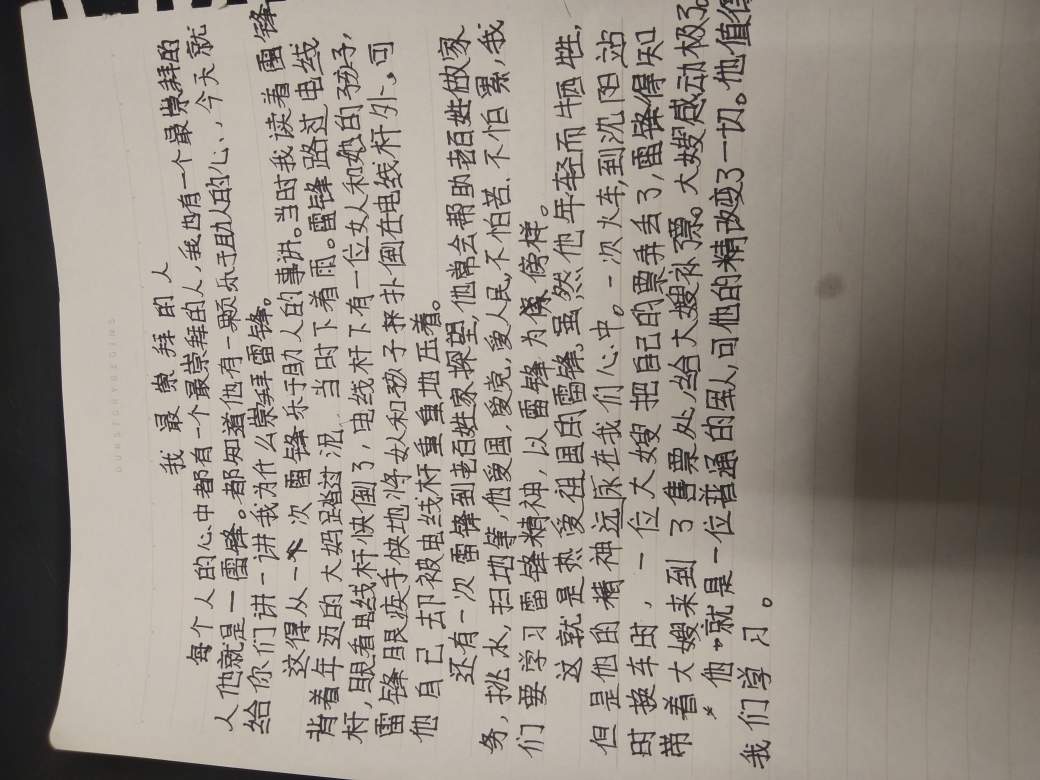 我最崇拜的人
每个人的心中都有一个最崇拜的人,我也有一个最崇拜的
人他就是一雷锋。都知道他有一颗乐于助人的心、,今天就
给你们讲一讲我为什么崇拜雷锋。
这得从一次雷锋乐于助人的事讲。当时我读着雷锋
背着年迈的大妈踏过泥,当时下着雨。雷锋路过电线
杆,眼看电线杆快倒了,电线杆下有一位女人和她的孩子,
雷锋眼疾手快地将女人和孩子扑倒在电线杆外、可
他自己去却被电线杆重重地压着。
还有一次雷锋到老百姓家探望,他常会帮助老百姓做家
务,挑水,扫地等,他爱国,爱党,爱人民,不怕苦、不怕累,我
们要学习雷锋精神,以雷锋为傍样。
这就是热爱祖国的雷锋,虽然他年轻而牺牲,
但是他的精神远永在我们心中。一次火车,到沈阳站
时换车时,一位大嫂把自己的票弄丢了,雷锋得知
带着大嫂来到了售票处,给大嫂补了票。大嫂感动极了。
他"就是一位普通的军人,可他的精改变了一切。他值得
我们学习。